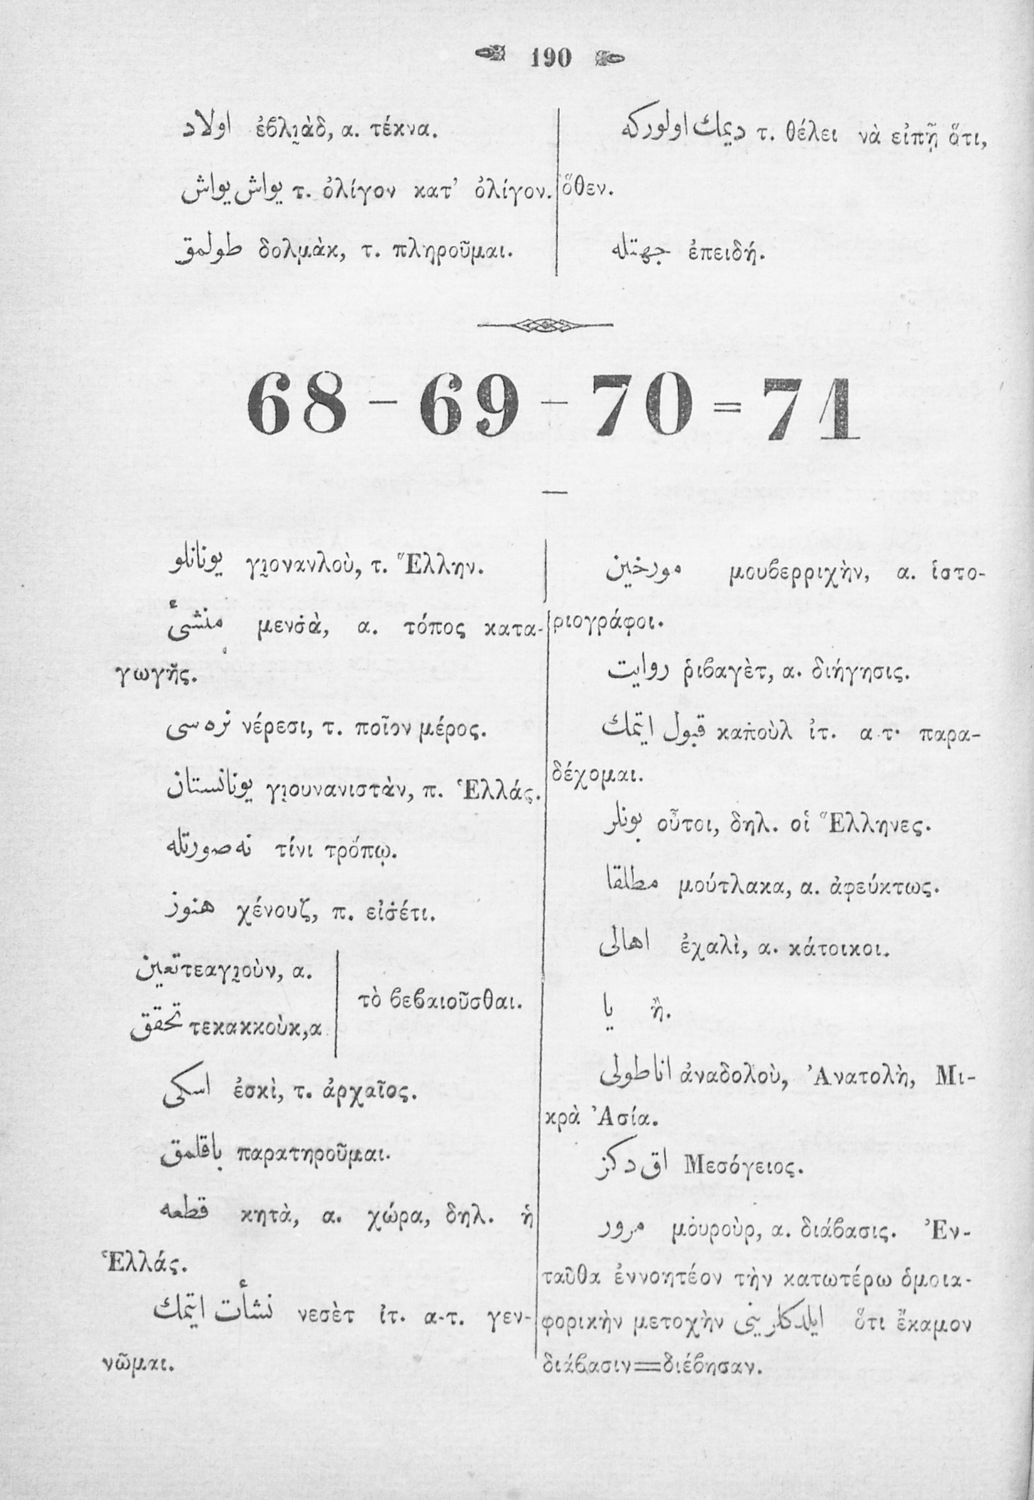 190
اولاد ἐβλι̯ὰδ, α. τέκνα.
يواش يواش τ. ὀλίγον κατ’ ὀλίγον.
طولمق δολμὰκ, τ. πληροῦμαι.
ديمك اولوركه τ. θέλει νὰ εἰπῇ ὅτι,
ὅθεν.
جهتله ἐπειδή.
68 – 69 – 70 = 71
—
يونانلو γι̯ονανλοὺ, τ. Ἕλλην.
منشئ μενσ̇ὰ, α. τόπος κατα-
γωγῆς.
نره سى νέρεσι, τ. ποῖον μέρος.
يونانستان γι̯ουνανιστὰν, π. Ἑλλάς.
نه صورتله τίνι τρόπῳ.
هنوز χένουζ, π. εἰσέτι.
تعين τεαγι̯οὺν, α.
تحقق τεκακκοὺκ, α
τὸ βεβαιοῦσθαι.
اسكى ἐσκὶ, τ. ἀρχαῖος.
باقلمق παρατηροῦμαι.
قطعه κητὰ, α. χώρα, δηλ. ἡ
Ἑλλάς.
نشأت ايتمك νεσὲτ ἰτ. α-τ. γεν-
νῶμαι.
مورخين μουβερριχὴν, α. ἱστο-
ριογράφοι.
روايت ῥιβαγὲτ, α. διήγησις.
قبول ايتمك καποὺλ ἰτ. α τ. παρα-
δέχομαι.
بونلر οὗτοι, δηλ. οἱ Ἕλληνες.
مطلقا μούτλακα, α. ἀφεύκτως.
اهالى ἐχαλὶ, α. κάτοικοι.
يا ἢ.
اناطولى ἀναδολοὺ, Ἀνατολὴ, Μι-
κρὰ Ἀσία.
اق دكز Μεσόγειος.
مرور μουροὺρ, α. διάβασις. Ἐν-
ταῦθα ἐννοητέον τὴν κατωτέρω ὁμοια-
φορικὴν μετοχὴν ايلدكلرينى ὅτι ἔκαμον
διάβασιν=διέβησαν.